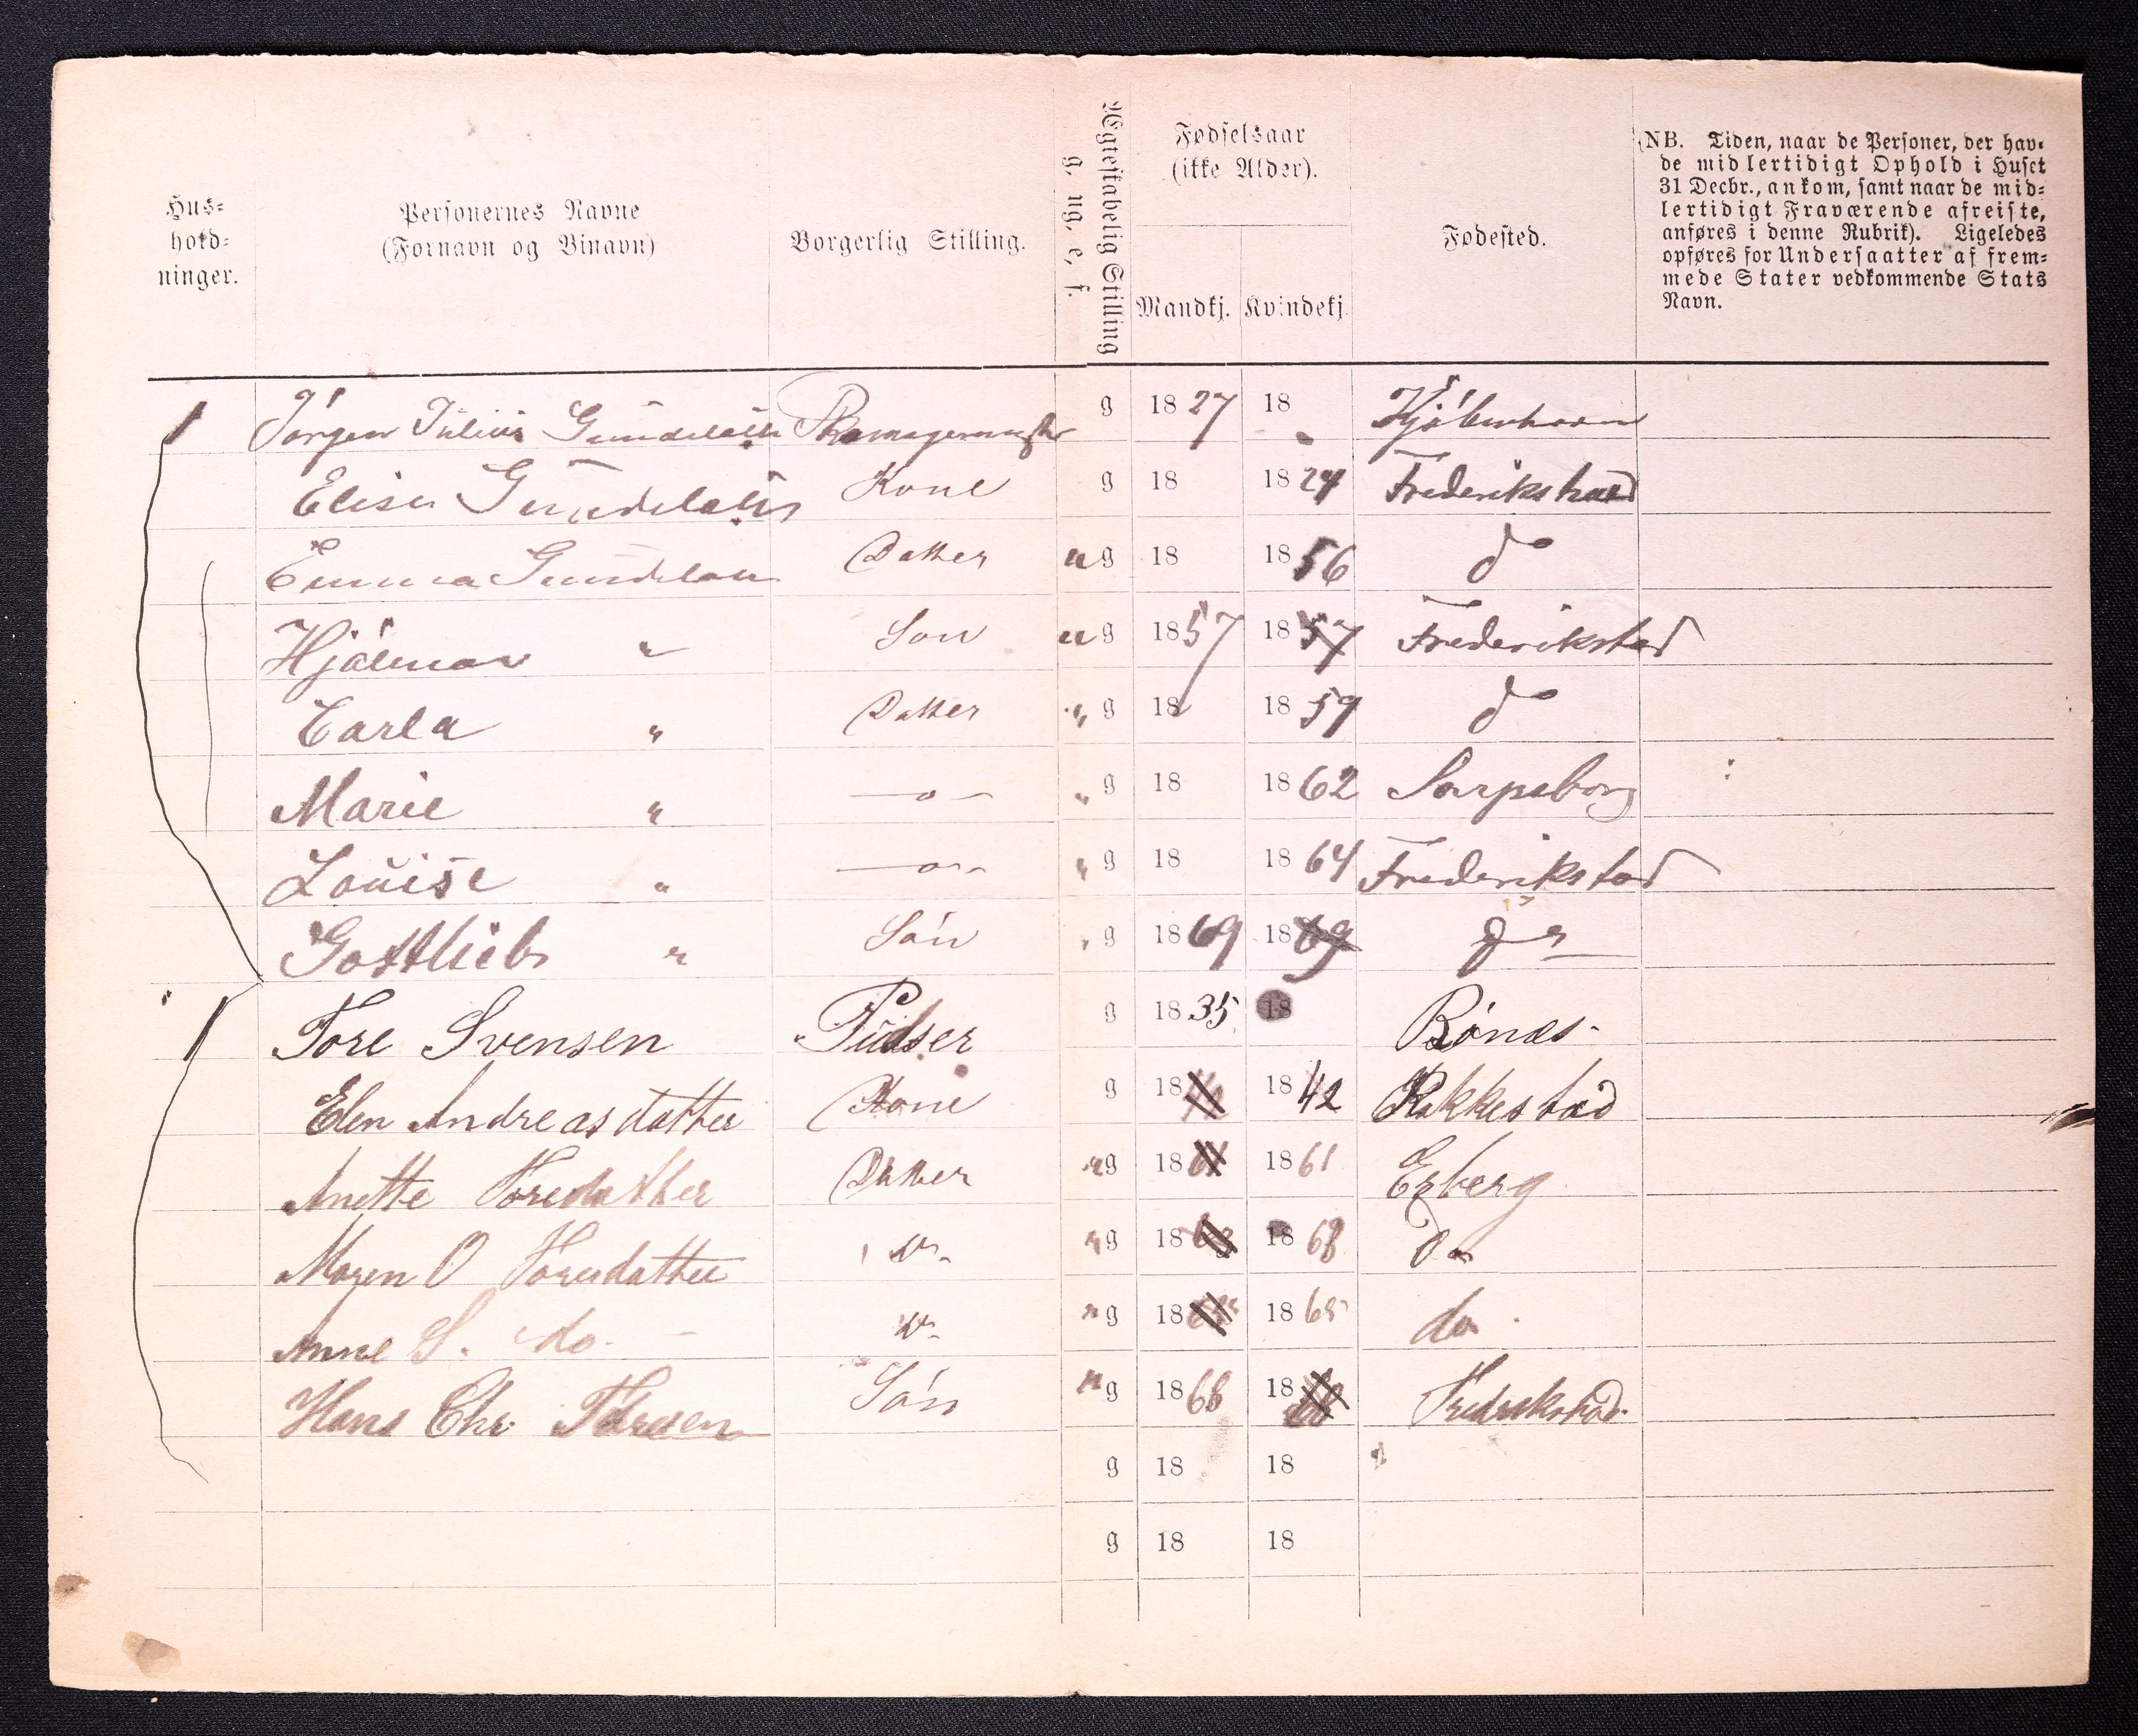 Hus-
hold-
ninger.
Personernes Navne
(Fornavn og Binavn)
Borgerlig Stilling.
Ægteskabelig Stilling
g, ug, e, f.
Fødselsaar
(ikke Alder).
Mandkj. Kvindekj.
Fødested.
NB. Tiden, naar de Personer, der hav-
de midlertidigt Ophold i Huset
31 Decbr., ankom, samt naar de mid-
lertidigt Fraværende afreiste,
anføres i denne Rubrik). Ligeledes
opføres for Undersaatter af frem-
mede Stater vedkommende Stats
Navn.
1 Jørgen Julius g 1827 18 Kjøbenhavn
Elise Kone g 18 1824 Frederikstad
Emma Datter ug 18 1856 do
Hjalmar " Søn ug 1857 1857 Frederikstad
Carla " Datter " g 18 1859 do
Marie " —o— " g 18 1862 Sarpsborg
Louise " —o— " g 18 1864 Frederikstad
Gottlieb " Søn " g 1869 1869 do
1 Tore Svensen Pudser g 1835 18
Elen Andreasdatter Kone g 18 1842 Rakkestad
Anette Toresdatter Datter ug 1861 1861
Maren O Toresdatter do ug 18 1863 do
Anne S. do. do ug 18 1865 do
Hans Chr. Toresen Søn ug 1868 18 Fredrekstad
g 18 18
g 18 18